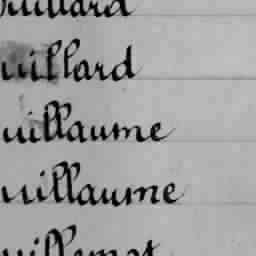 uillard
uillard
uillaume
uillaume
uillemot